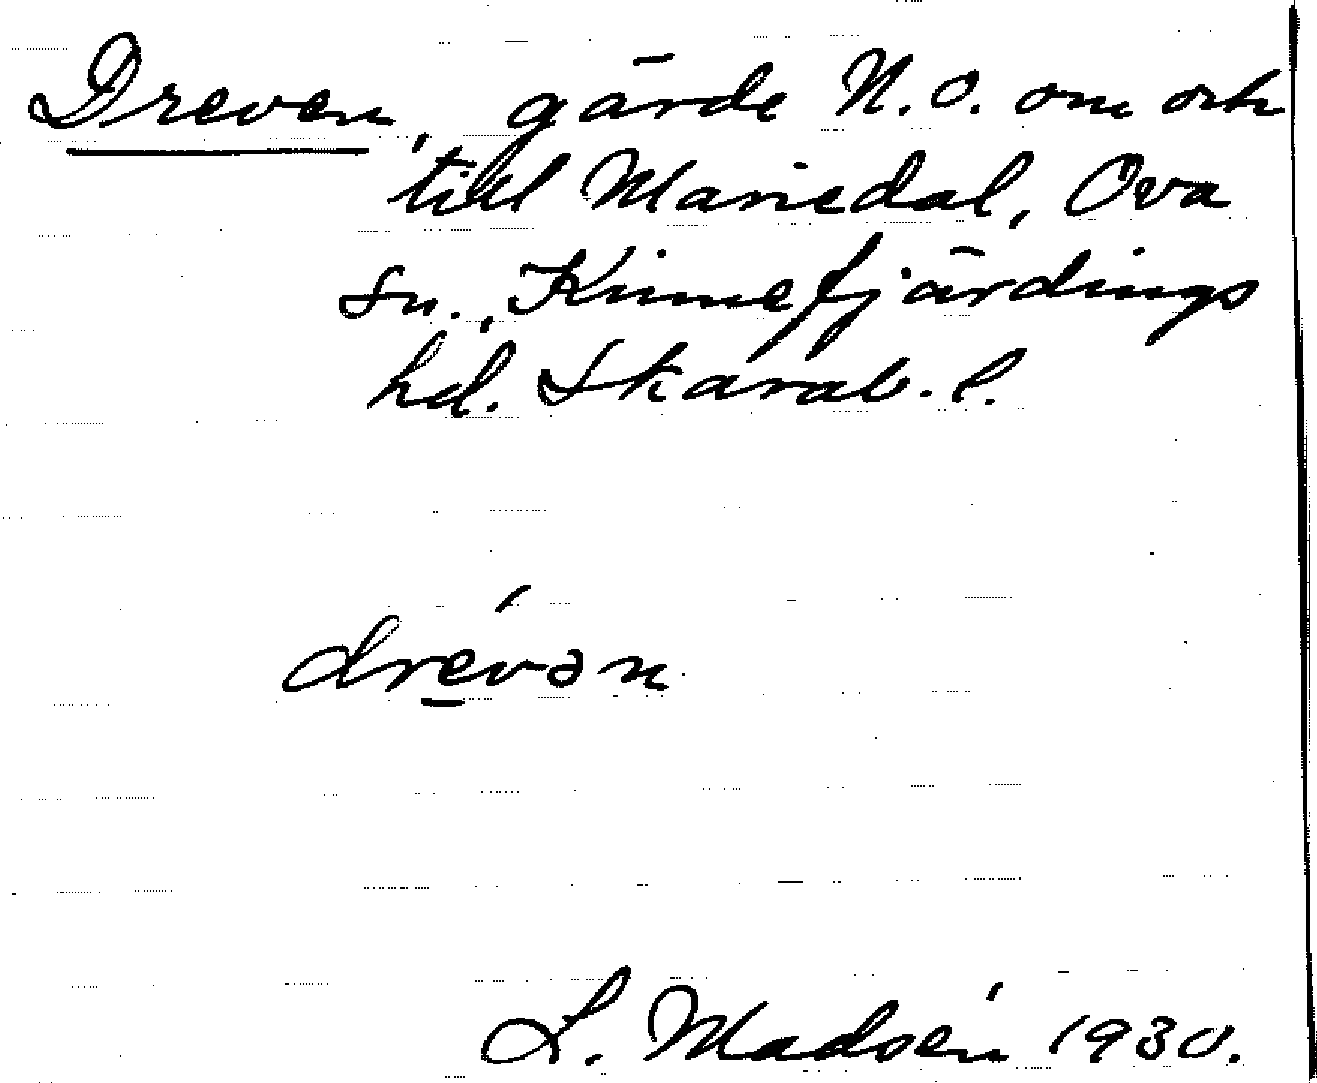 Dreven, gärde N.O. om och
till Mariedal, Ova
sn., Kinnefjärdings
hd. Skarab. l.
drevən
L. Madsén 1930.